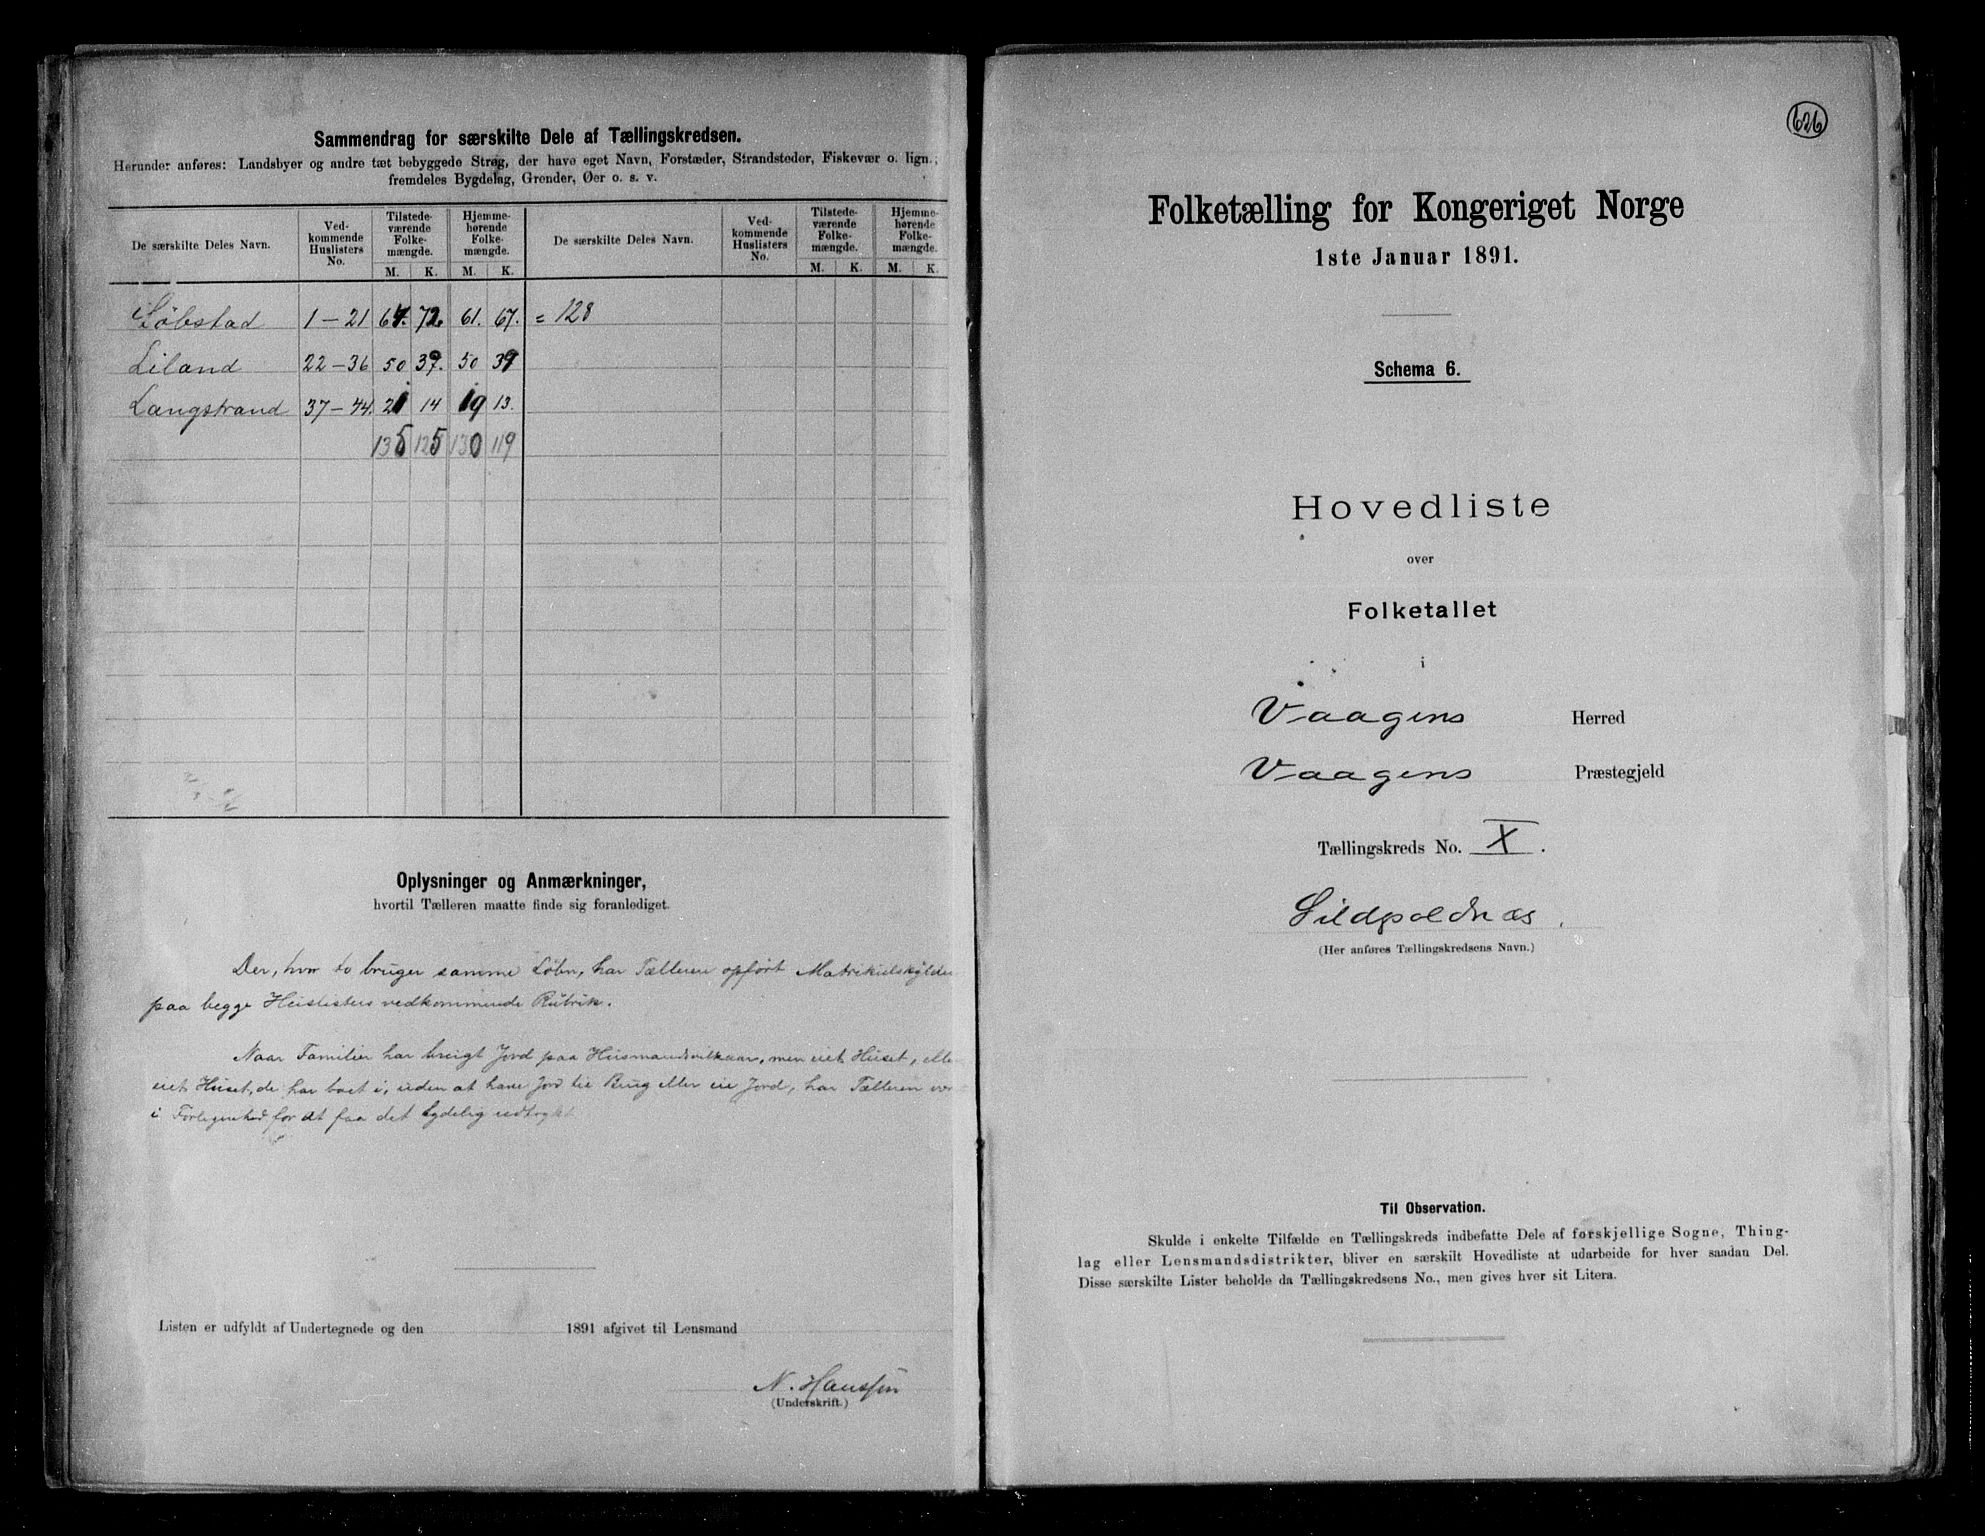 Sammendrag for særskilte Dele af Tællingskredsen.
Herunder anføres: Landsbyer og andre tæt bebyggede Strøg, der have eget Navn, Forstæder, Strandsteder, Fiskevær o. lign.;
fremdeles Bygdelag, Grender, Øer o. s. v.
De særskilte Deles Navn. Ved-kommende Huslisters No. Tilstede-værende Folke-mængde. Hjemme-hørende Folke-mængde. De særskilte Deles Navn. Ved-kommende Huslisters No. Tilstede-værende Folke-mængde. Hjemme-hørende Folke-mængde.
M. K. M. K. M. K. M. K.
Løbstad 1-21 64. 72. 61. 67. = 128
Liland 22-36 50 39. 50 39
Langstrand 37-44. 21 14 19 13.
135 125 130 119
Oplysninger og Anmærkninger,
hvortil Tælleren maatte finde sig foranlediget.
Der, hvor to bruger samme Løbn, har Tælleren opført Matrikulskylden
paa begge Huslisters vedkommende Rubrik.
Naar Familier har brugt Jord paa Husmandsvilkaar, men eiet Huset, eller
eiet Huset, de har boet i, uden at have Jord til Brug eller eie Jord, har Tælleren
i Forlegenhed for at faa det tydelig udtrykt
Listen er udfyldt af Undertegnede og den 1891 afgivet til Lensmand
N. Hanssen
(Underskrift.)
626
Folketælling for Kongeriget Norge
1ste Januar 1891.
Schema 6.
Hovedliste
over
Folketallet
i
Vaagens Herred
Vaagens Præstegjeld
Tællingskreds No. X.
Sildpoldnæs.
(Her anføres Tællingskredsens Navn.)
Til Observation.
Skulde i enkelte Tilfælde en Tællingskreds indbefatte Dele af forskjellige Sogne, Thing-
lag eller Lensmandsdistrikter, bliver en særskilt Hovedliste at udarbeide for hver saadan Del.
Disse særskilte Lister beholde da Tællingskredsens No., men gives hver sit Litera.